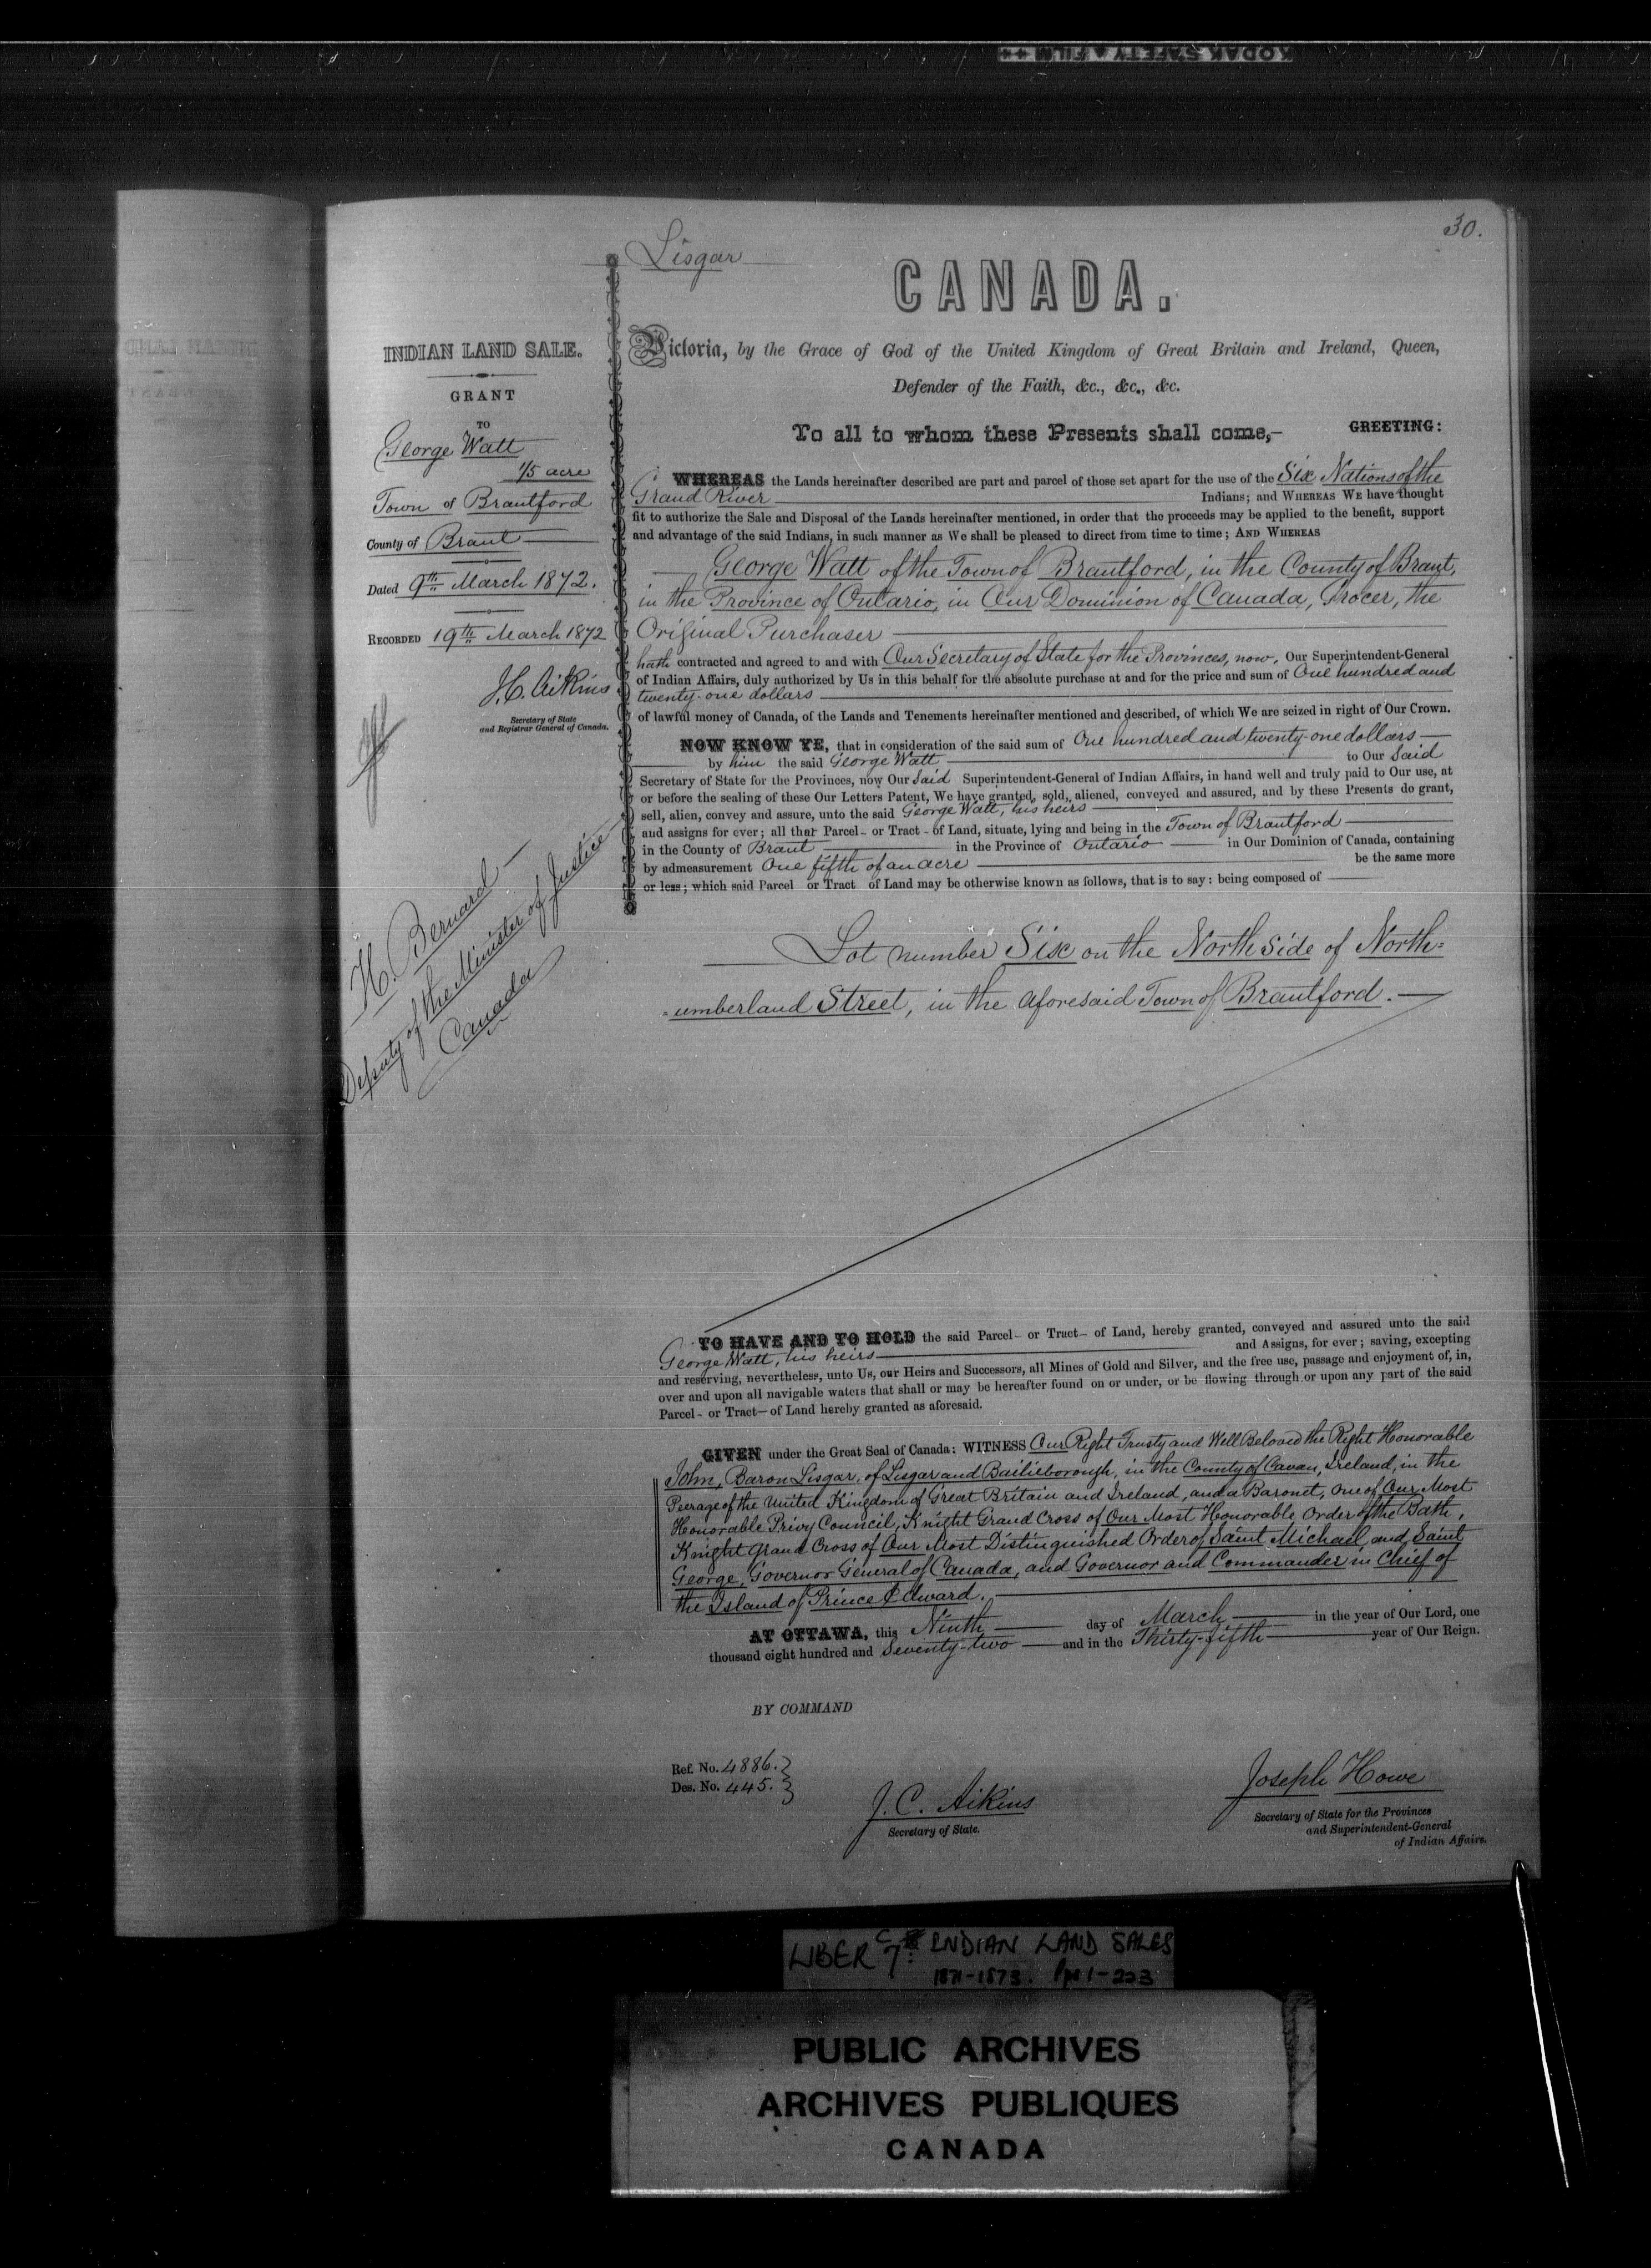 KODAK SAFETY FILM
30.
Lisgar
CANADA.
INDIAN LAND SALE.
GRANT
TO
George Watt
1/5 acre
Town of Brantford
County of Brant
Dated 9th March 1872.
RECORDED 19th March 1872
J.C. Aikins
Secretary of State
and Registrar General of Canada.
H. Bernard
Deputy of the Minister of Justice
Canada
Victoria, by the Grace of God of the United Kingdom of Great Britain and Ireland, Queen,
Defender of the Faith, &c., &c., &c.
To all to whom these Presents shall come,— GREETING:
WHEREAS the Lands hereinafter described are part and parcel of those set apart for the use of the Six Nations of the
Grand River Indians; and WHEREAS WE have thought
fit to authorize the Sale and Disposal of the Lands hereinafter mentioned, in order that the proceeds may be applied to the benefit, support
and advantage of the said Indians, in such manner as We shall be pleased to direct from time to time; AND WHEREAS
George Watt of the Town of Brantford, in the County of Brant,
in the Province of Ontario, in Our Dominion of Canada, Grocer, the
Original Purchaser
hath contracted and agreed to and with Our Secretary of State for the Provinces, now, Our Superintendent-General
of Indian Affairs, duly authorized by Us in this behalf for the absolute purchase at and for the price and sum of One hundred and
twenty-one dollars
of lawful money of Canada, of the Lands and Tenements hereinafter mentioned and described, of which We are seized in right of Our Crown.
NOW KNOW YE, that in consideration of the said sum of One hundred and twenty-one dollars
by him the said George Watt to Our Said
Secretary of State for the Provinces, now Our Said Superintendent-General of Indian Affairs, in hand well and truly paid to Our use, at
or before the sealing of these Our Letters Patent, We have granted, sold, aliened, conveyed and assured, and by these Presents do grant,
sell, alien, convey and assure, unto the said George Watt, his heirs
and assigns for ever; all that Parcel- or Tract - of Land, situate, lying and being in the Town of Brantford
in the County of Brant in the Province of Ontario in Our Dominion of Canada, containing
by admeasurement One fifth of an acre be the same more
or less; which said Parcel or Tract of Land may be otherwise known as follows, that is to say: being composed of
Lot number Six on the North Side of North=
=umberland Street, in the aforesaid Town of Brantford.
TO HAVE AND TO HOLD the said Parcel- or Tract- of Land, hereby granted, conveyed and assured unto the said
George Watt, his heirs and Assigns, for ever; saving, excepting
and reserving, nevertheless, unto Us, our Heirs and Successors, all Mines of Gold and Silver, and the free use, passage and enjoyment of, in,
over and upon all navigable waters that shall or may be hereafter found on or under, or be flowing through or upon any part of the said
Parcel- or Tract- of Land hereby granted as aforesaid.
GIVEN under the Great Seal of Canada: WITNESS Our Right Trusty and Well Beloved the Right Honorable
John, Baron Lisgar, of Lisgar and Bailieborough, in the County of Cavan, Ireland, in the
Peerage of the United Kingdom of Great Britain and Ireland, and a Baronet, One of Our Most
Honorable Privy Council, Knight Grand Cross of Our Most Honorable Order of the Bath,
Knight Grand Cross of Our Most Distinguished Order of Saint Michael, and Saint
George, Governor General of Canada, and Governor and Commander in Chief of
the Island of Prince Edward.
AT OTTAWA, this Ninth day of March in the year of Our Lord, one
thousand eight hundred and Seventy-two and in the Thirty-fifth year of Our Reign.
BY COMMAND
Ref. No. 4886.
Des. No. 445.
J. C. Aikins
Secretary of State.
Joseph Howe
Secretary of State for the Provinces
and Superintendent-General
of Indian Affairs.
LIBER C7: INDIAN LAND SALES
1871-1873. Pgs 1-223
PUBLIC ARCHIVES
ARCHIVES PUBLIQUES
CANADA